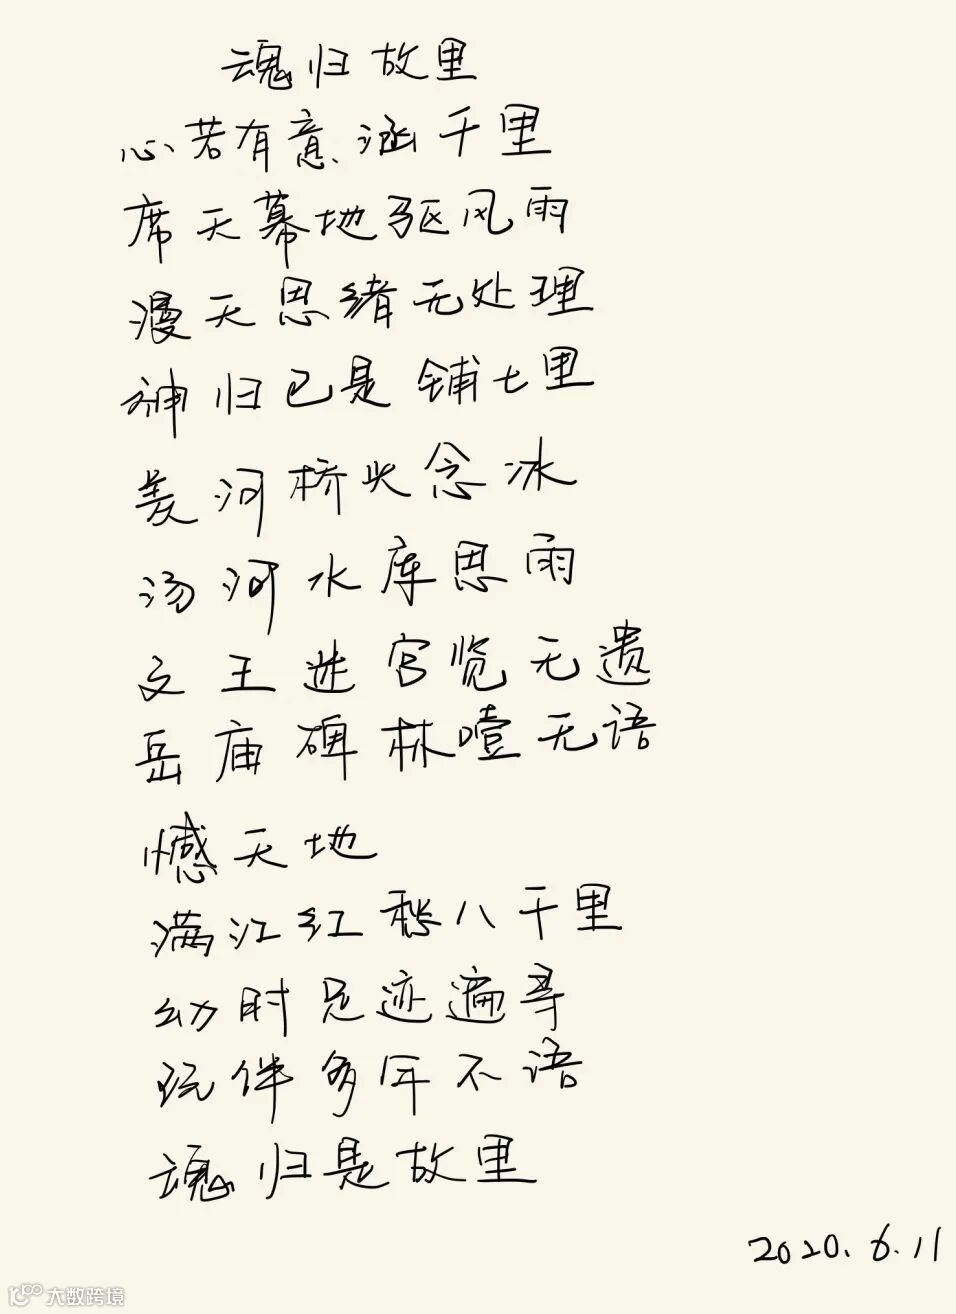 魂归故里
心若有意涵千里
席天幕地驱风雨
漫天思绪无处理
神归已是铺七里
羑河桥头念冰
汤河水库思雨
文王迷宫览无遗
岳庙碑林噎无语
憾天地
满江红愁八千里
幼时足迹遍寻
玩伴多年不语
魂归是故里
2020.6.11
大数跨境